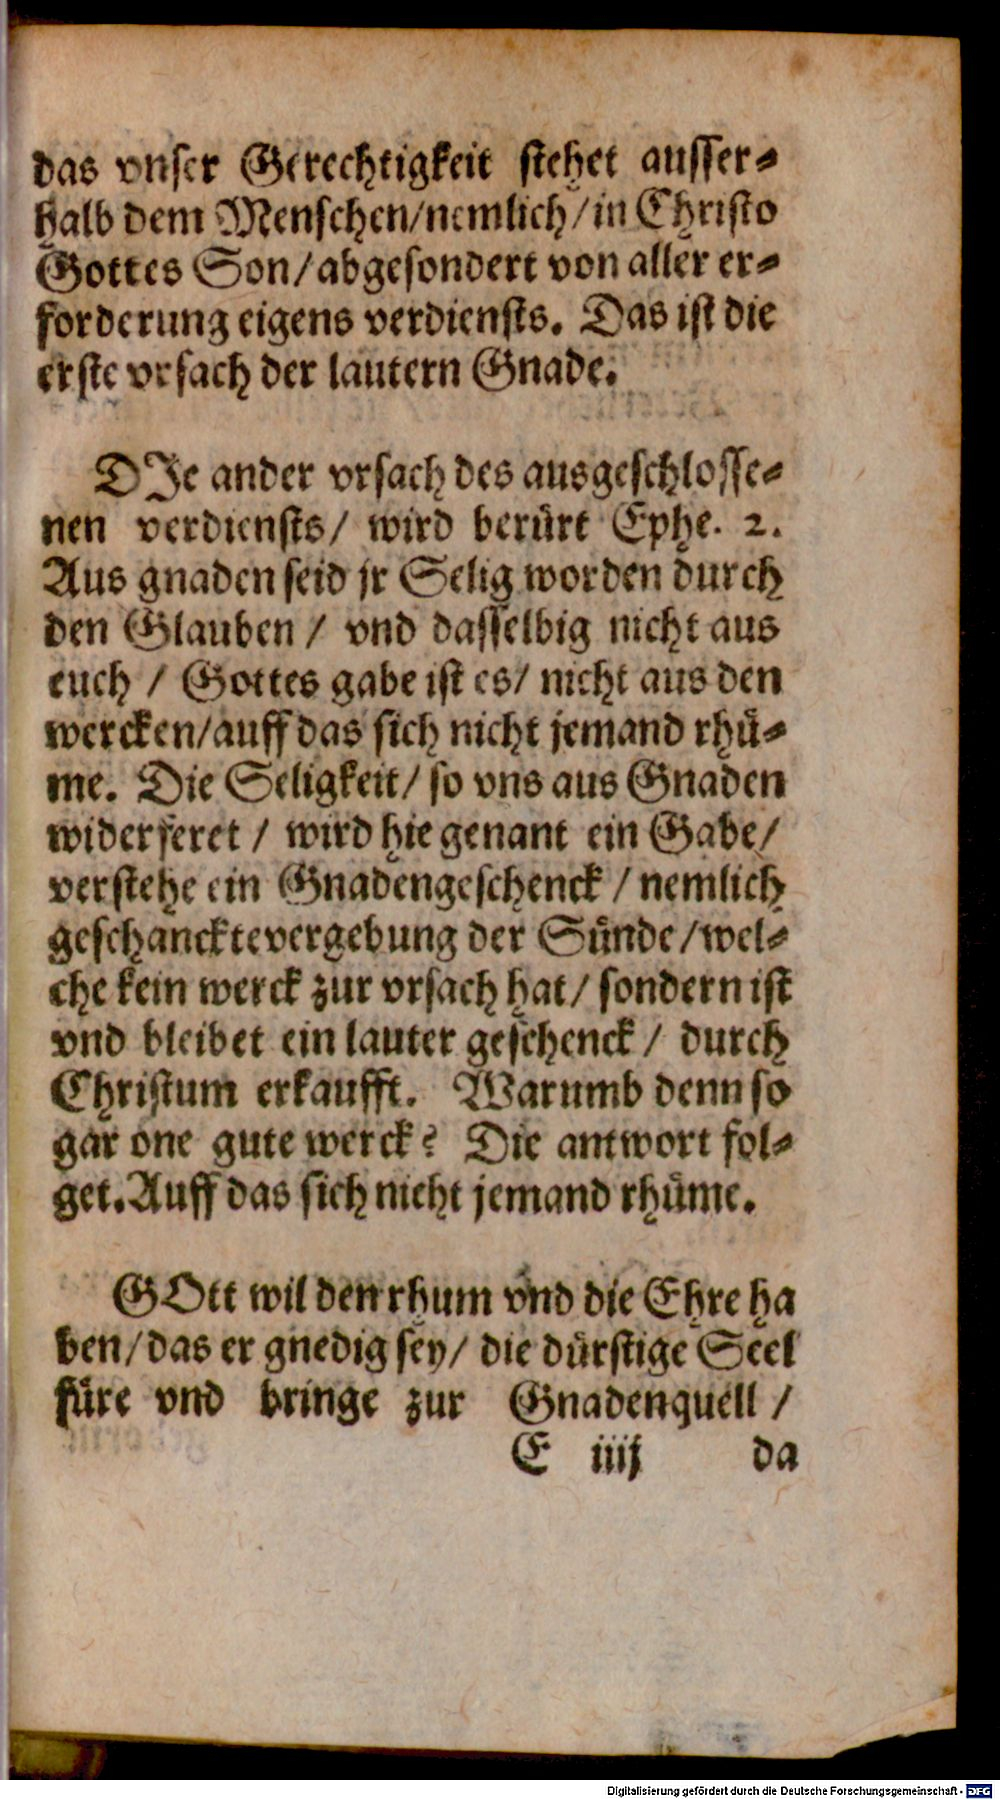 das vnser Gerechtigkeit stehet ausser-
halb dem Menschen/nemlich/in Christo
Gottes Son/abgesondert von aller er-
forderung eigens verdiensts. Das ist die
erste vrsach der lautern Gnade.
DJe ander vrsach des ausgeschlosse-
nen verdiensts/ wird berürt Ephe. 2.
Aus gnaden seid jr Selig worden durch
den Glauben / vnd dasselbig nicht aus
euch / Gottes gabe ist es/ nicht aus den
wercken/auff das sich nicht jemand rhü-
me. Die Seligkeit/ so vns aus Gnaden
widerferet / wird hie genant ein Gabe/
verstehe ein Gnadengeschenck / nemlich
geschanckte vergebung der Sünde/wel-
che kein werck zur vrsach hat/ sondern ist
vnd bleibet ein lauter geschenck / durch
Christum erkaufft. Warumb denn so
gar one gute werck? Die antwort fol-
get. Auff das sich nicht jemand rhüme.
GOtt wil den rhum vnd die Ehre ha
ben/das er gnedig sey/ die dürstige Seel
füre vnd bringe zur Gnadenquell /
E iiij da
Digitalisierung gefördert durch die Deutsche Forschungsgemeinschaft - DFG